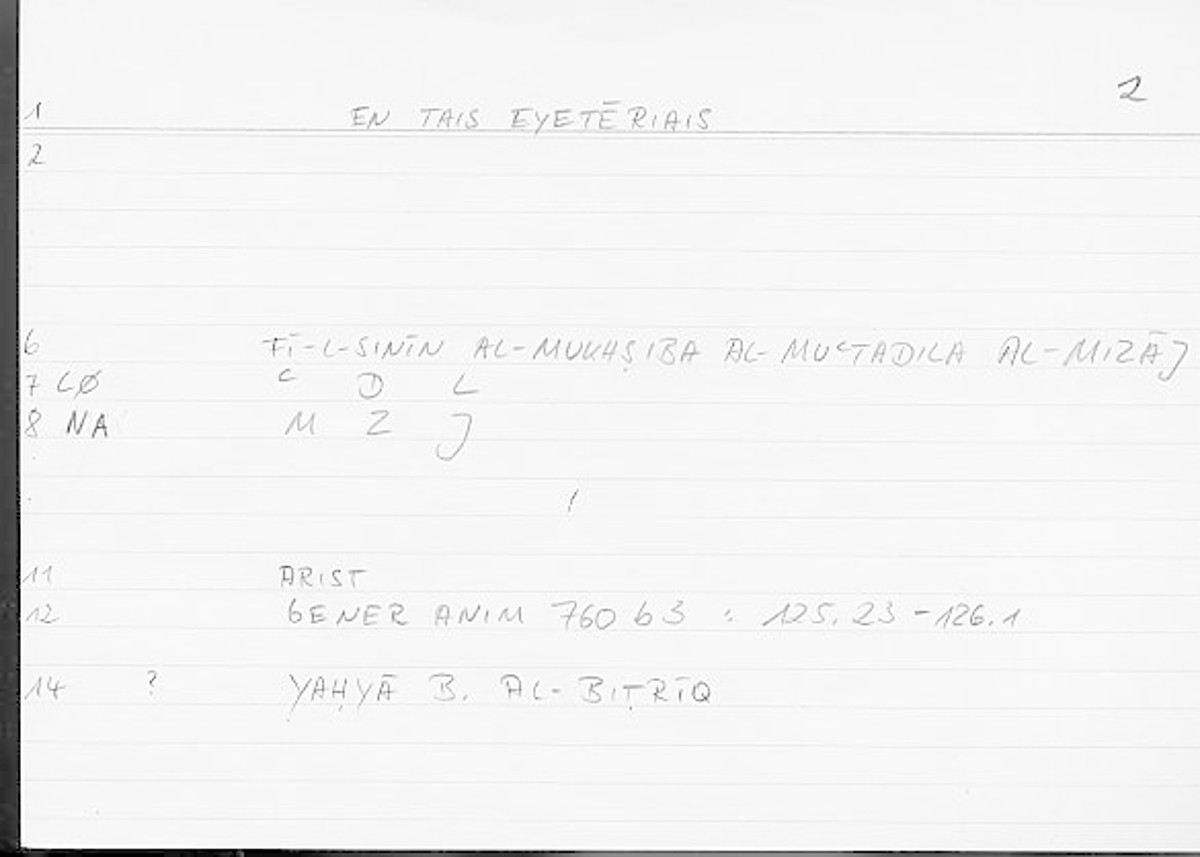 2
1 EN TAIS EYETĒRIAIS
2
6 FĪ-L-SINĪN AL-MUKHṢIBA AL-MUʿTADILA AL-MIZĀJ
7 LØ ʿ D L
8 NA M Z J
/
11 ARIST
12 GENER ANIM 760 b3 : 125.23-126.1
14 ? YAḤYĀ B. AL-BIṬRĪQ